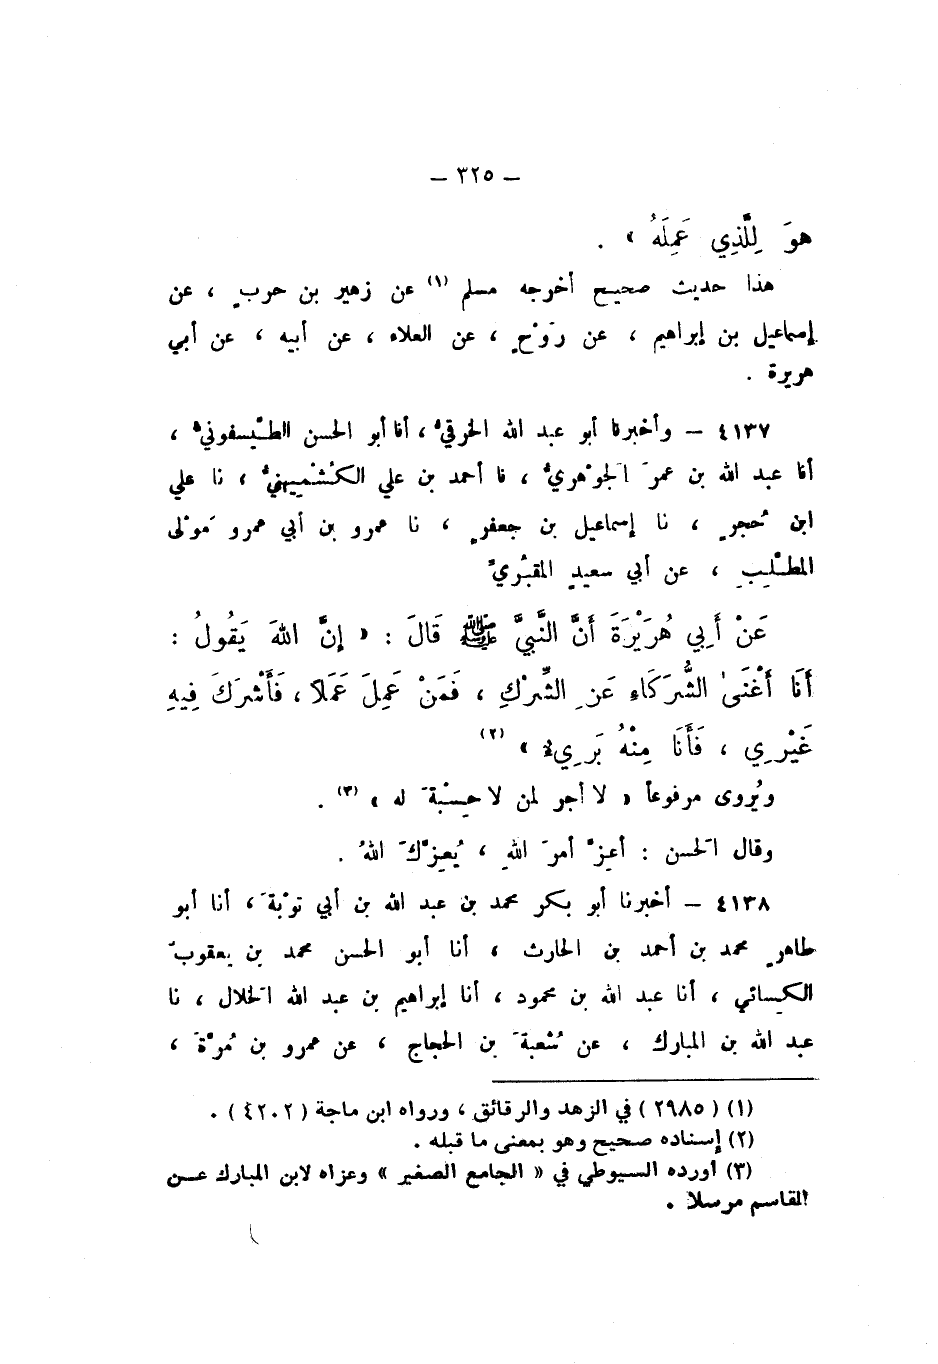 – ٣٢٥ –
هوَ لِلَّذِي عَمِلَهُ » .
هذا حديث صحيح أخرجه مسلم (١) عن زهير بن حربٍ ، عن
إسماعيل بن إبراهيم ، عن رَوْحٍ ، عن العلاء ، عن أبيه ، عن أبي
هريرة .
٤١٣٧ – وأخبرنا أبو عبد الله الخرقيُّ ، أنا أبو الحسن الطَّيسفونيُّ ،
أنا عبد الله بن عمرَ الجوْهريُّ ، نا أحمد بن علي الكُشْمِيهنيُّ ، نا علي
ابن حُجرٍ ، نا إسماعيل بن جعفرٍ ، نا عمرو بن أبي عمرو مَوْلى
المطَّلِبِ ، عن أبي سعيدٍ المقبُريِّ
عَنْ أَبِي هُرَيْرَةَ أَنَّ النَّبِيَّ ﷺ قَالَ : « إِنَّ اللهَ يَقُولُ :
أَنَا أَغْنَىٰ الشُّرَكَاءِ عَنِ الشِّرْكِ ، فَمَنْ عَمِلَ عَمَلاً ، فَأَشْرَكَ فِيهِ
غَيْرِي ، فَأَنَا مِنْهُ بَرِيءٌ » (٢)
ويُروى مرفوعاً « لا أجر لمن لا حِسْبةَ له » (٣) .
وقال الحَسن : أعِزَّ أمرَ اللهِ ، يُعِزَّكَ اللهُ .
٤١٣٨ – أخبرنا أبو بكر محمد بن عبد الله بن أبي توْبةَ ، أنا أبو
طاهرٍ محمد بن أحمد بن الحارث ، أنا أبو الحسن محمد بن يعقوبَ
الكِسائي ، أنا عبد الله بن محمود ، أنا إبراهيم بن عبد الله الخَلال ، نا
عبد الله بن المبارك ، عن شُعبةَ بن الحجاج ، عن عمرو بن مُرَّةَ ،
(١) ( ٢٩٨٥ ) في الزهد والرقائق ، ورواه ابن ماجة ( ٤٢٠٢ ) .
(٢) إسناده صحيح وهو بمعنى ما قبله .
(٣) أورده السيوطي في « الجامع الصغير » وعزاه لابن المبارك عن
القاسم مرسلا .